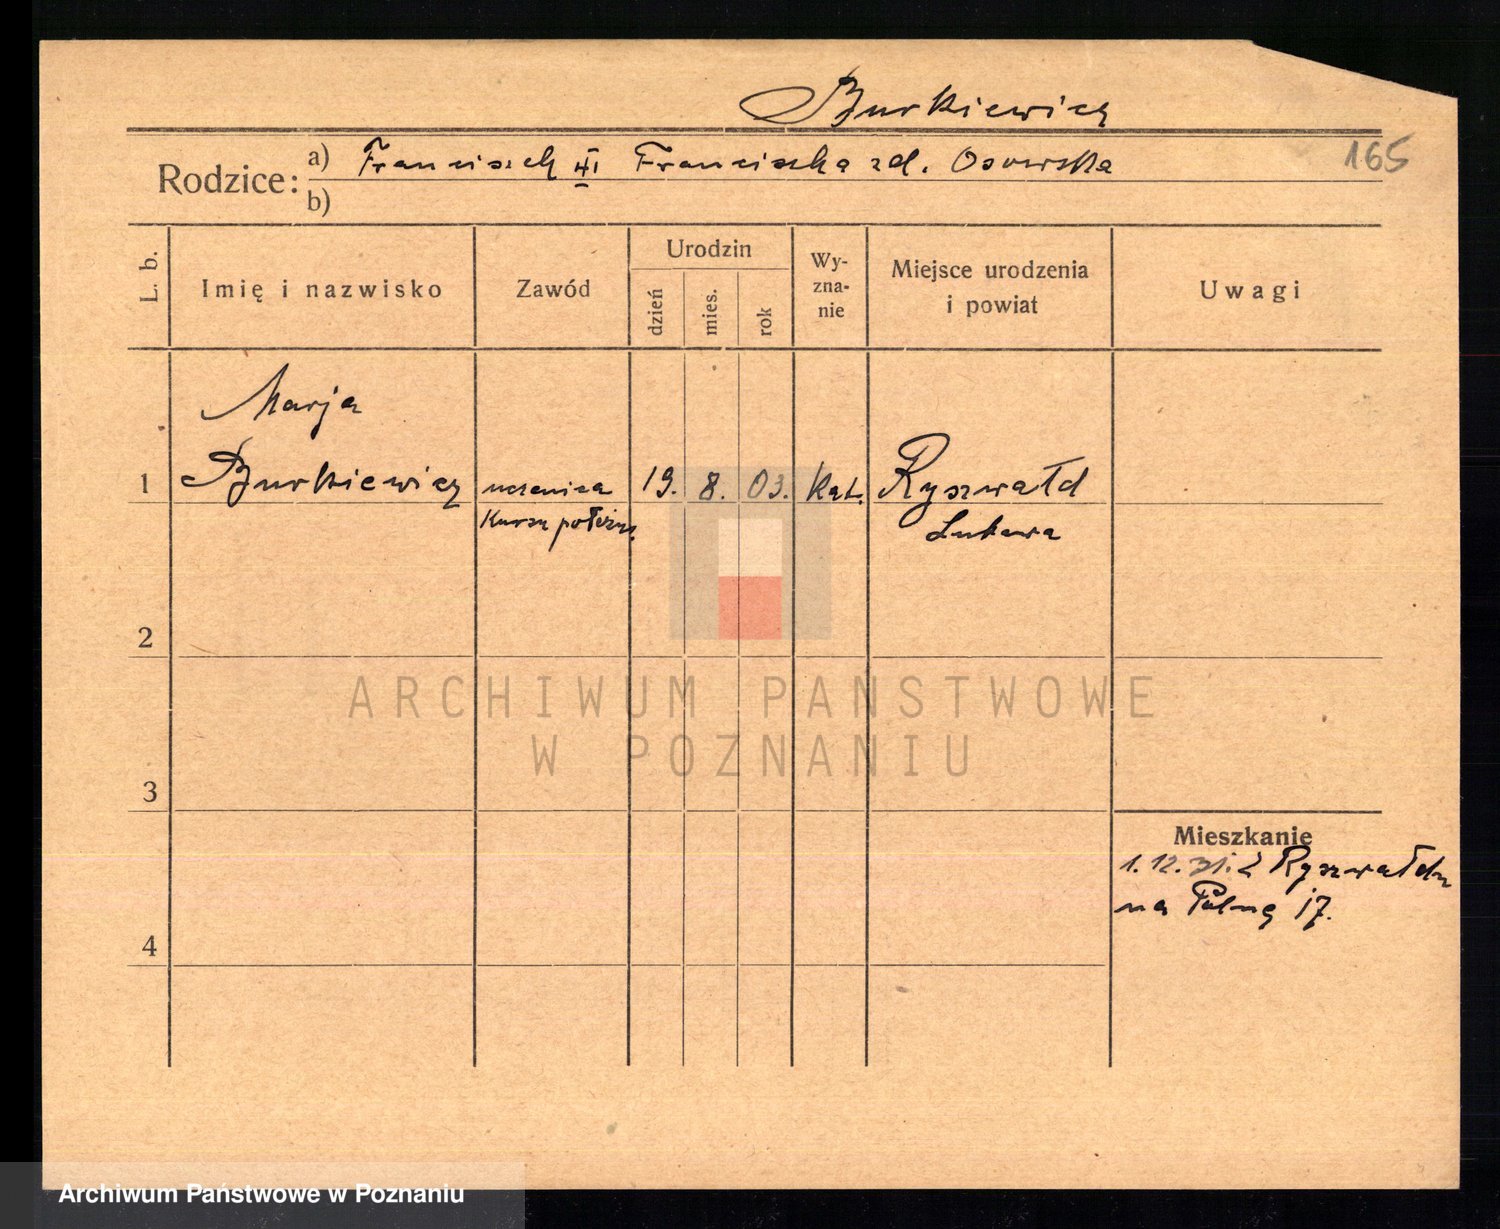 Burkiewicz
165
Rodzice: a) Franciszek Franciszka zd. Osowska
b)
L. b.
Imię i nazwisko
Zawód
Urodzin
dzień
mies.
rok
Wy-
zna-
nie
Miejsce urodzenia
i powiat
Uwagi
Marja
1 Burkiewicz uczenica 19. 8. 03. Kat. Ryszwałd
Kursu położn. Lubawa
2
3
4
Mieszkanie
1.12.31. z Ryszwałdu
na Polną 17.
ARCHIWUM PAŃSTWOWE
W POZNANIU
Archiwum Państwowe w Poznaniu